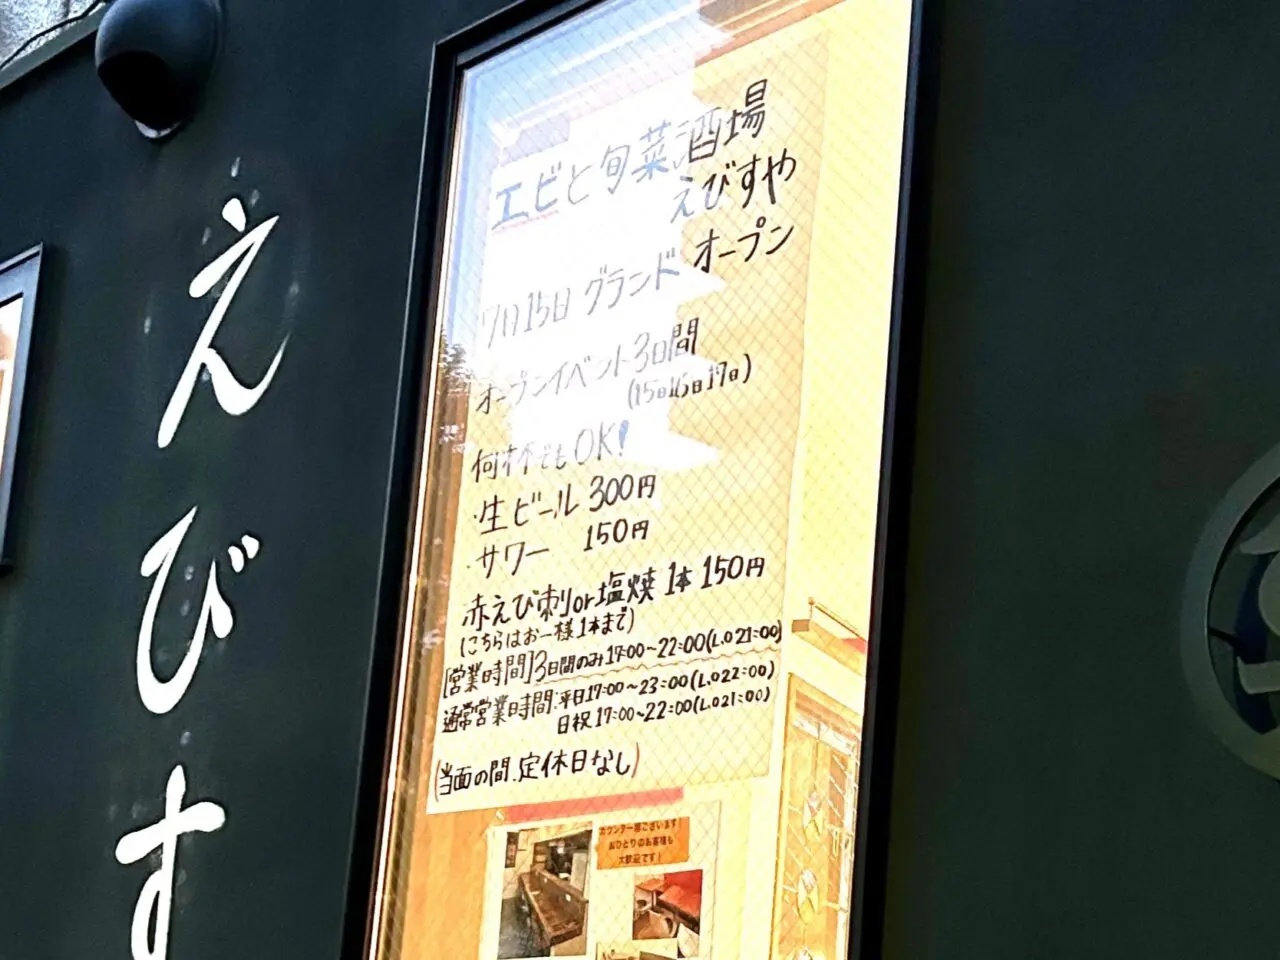 えびす
エビと旬菜酒場
えびすや
7月15日 グランドオープン
オープンイベント3日間
(15日16日17日)
何杯でもOK!
・生ビール 300円
・サワー 150円
赤えび刺or塩焼 1本 150円
(こちらはお一様1本まで)
[営業時間]3日間のみ17:00~22:00(L.O21:00)
通常営業時間:平日17:00~23:00(L.O22:00)
日祝17:00~22:00(L.O21:00)
(当面の間.定休日なし)
カウンター席ございます!
おひとりのお客様も
大歓迎です!